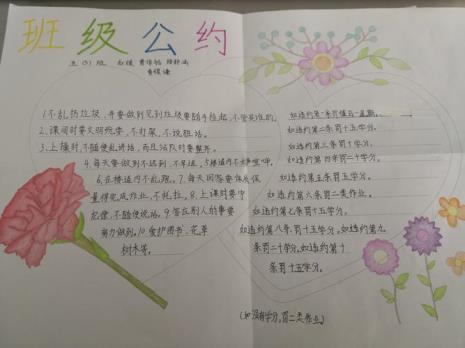 班级公约
五(3)班
1.不乱扔垃圾,并要做到见到垃圾要随手捡起,不管是谁的。
2.课间时要文明玩耍,不打架,不说脏话。
3.上操时,不随便乱讲话,而且站队时要整齐。
4.每天要做到不迟到,不早退,5.楼道内不大声喧哗。
6.在楼道内不乱跑。7.每天回答要保质保
量得完成作业,不拖拉。8.上课时要守
纪律,不随便说话。9.答应别人的事要
努力做到。10.爱护图书、花草
树木等。
如违约第一条罚值日一星期。
如违约第二条罚十五学分。
如违约第三条罚十学分。
如违约第四条罚二十学分。
如违约第五条罚五学分。
如违约第六条罚二类作业。
如违约第七条罚十五学分。
如违约第八条,罚十五学分。如违约第九
条罚二十学分,如违约第十
条罚十五学分。
(如没有学分,罚二类作业。)